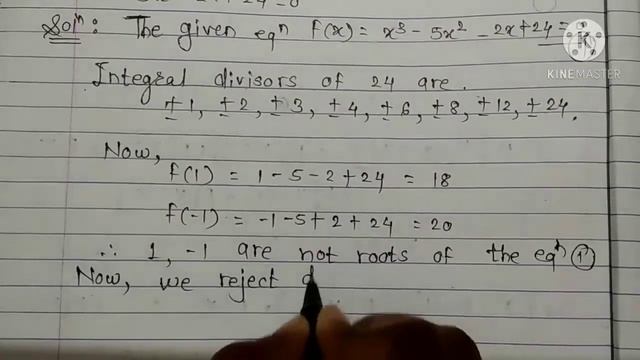 Solⁿ: The given eqⁿ f(x) = x³ - 5x² - 2x + 24 =
KINEMASTER
Integral divisors of 24 are.
± 1, ± 2, ± 3, ± 4, ± 6, ± 8, ± 12, ± 24.
Now,
f(1) = 1 - 5 - 2 + 24 = 18
f(-1) = -1 - 5 + 2 + 24 = 20
∴ 1, -1 are not roots of the eqⁿ ①
Now, we reject